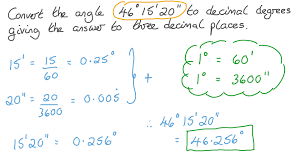 Convert the angle 46°15'20" to decimal degrees
giving the answer to three decimal places.
15' = 15/60 = 0.25°
20" = 20/3600 = 0.005̇
+
15'20" = 0.256°
1° = 60'
1° = 3600"
∴ 46°15'20"
= 46.256°